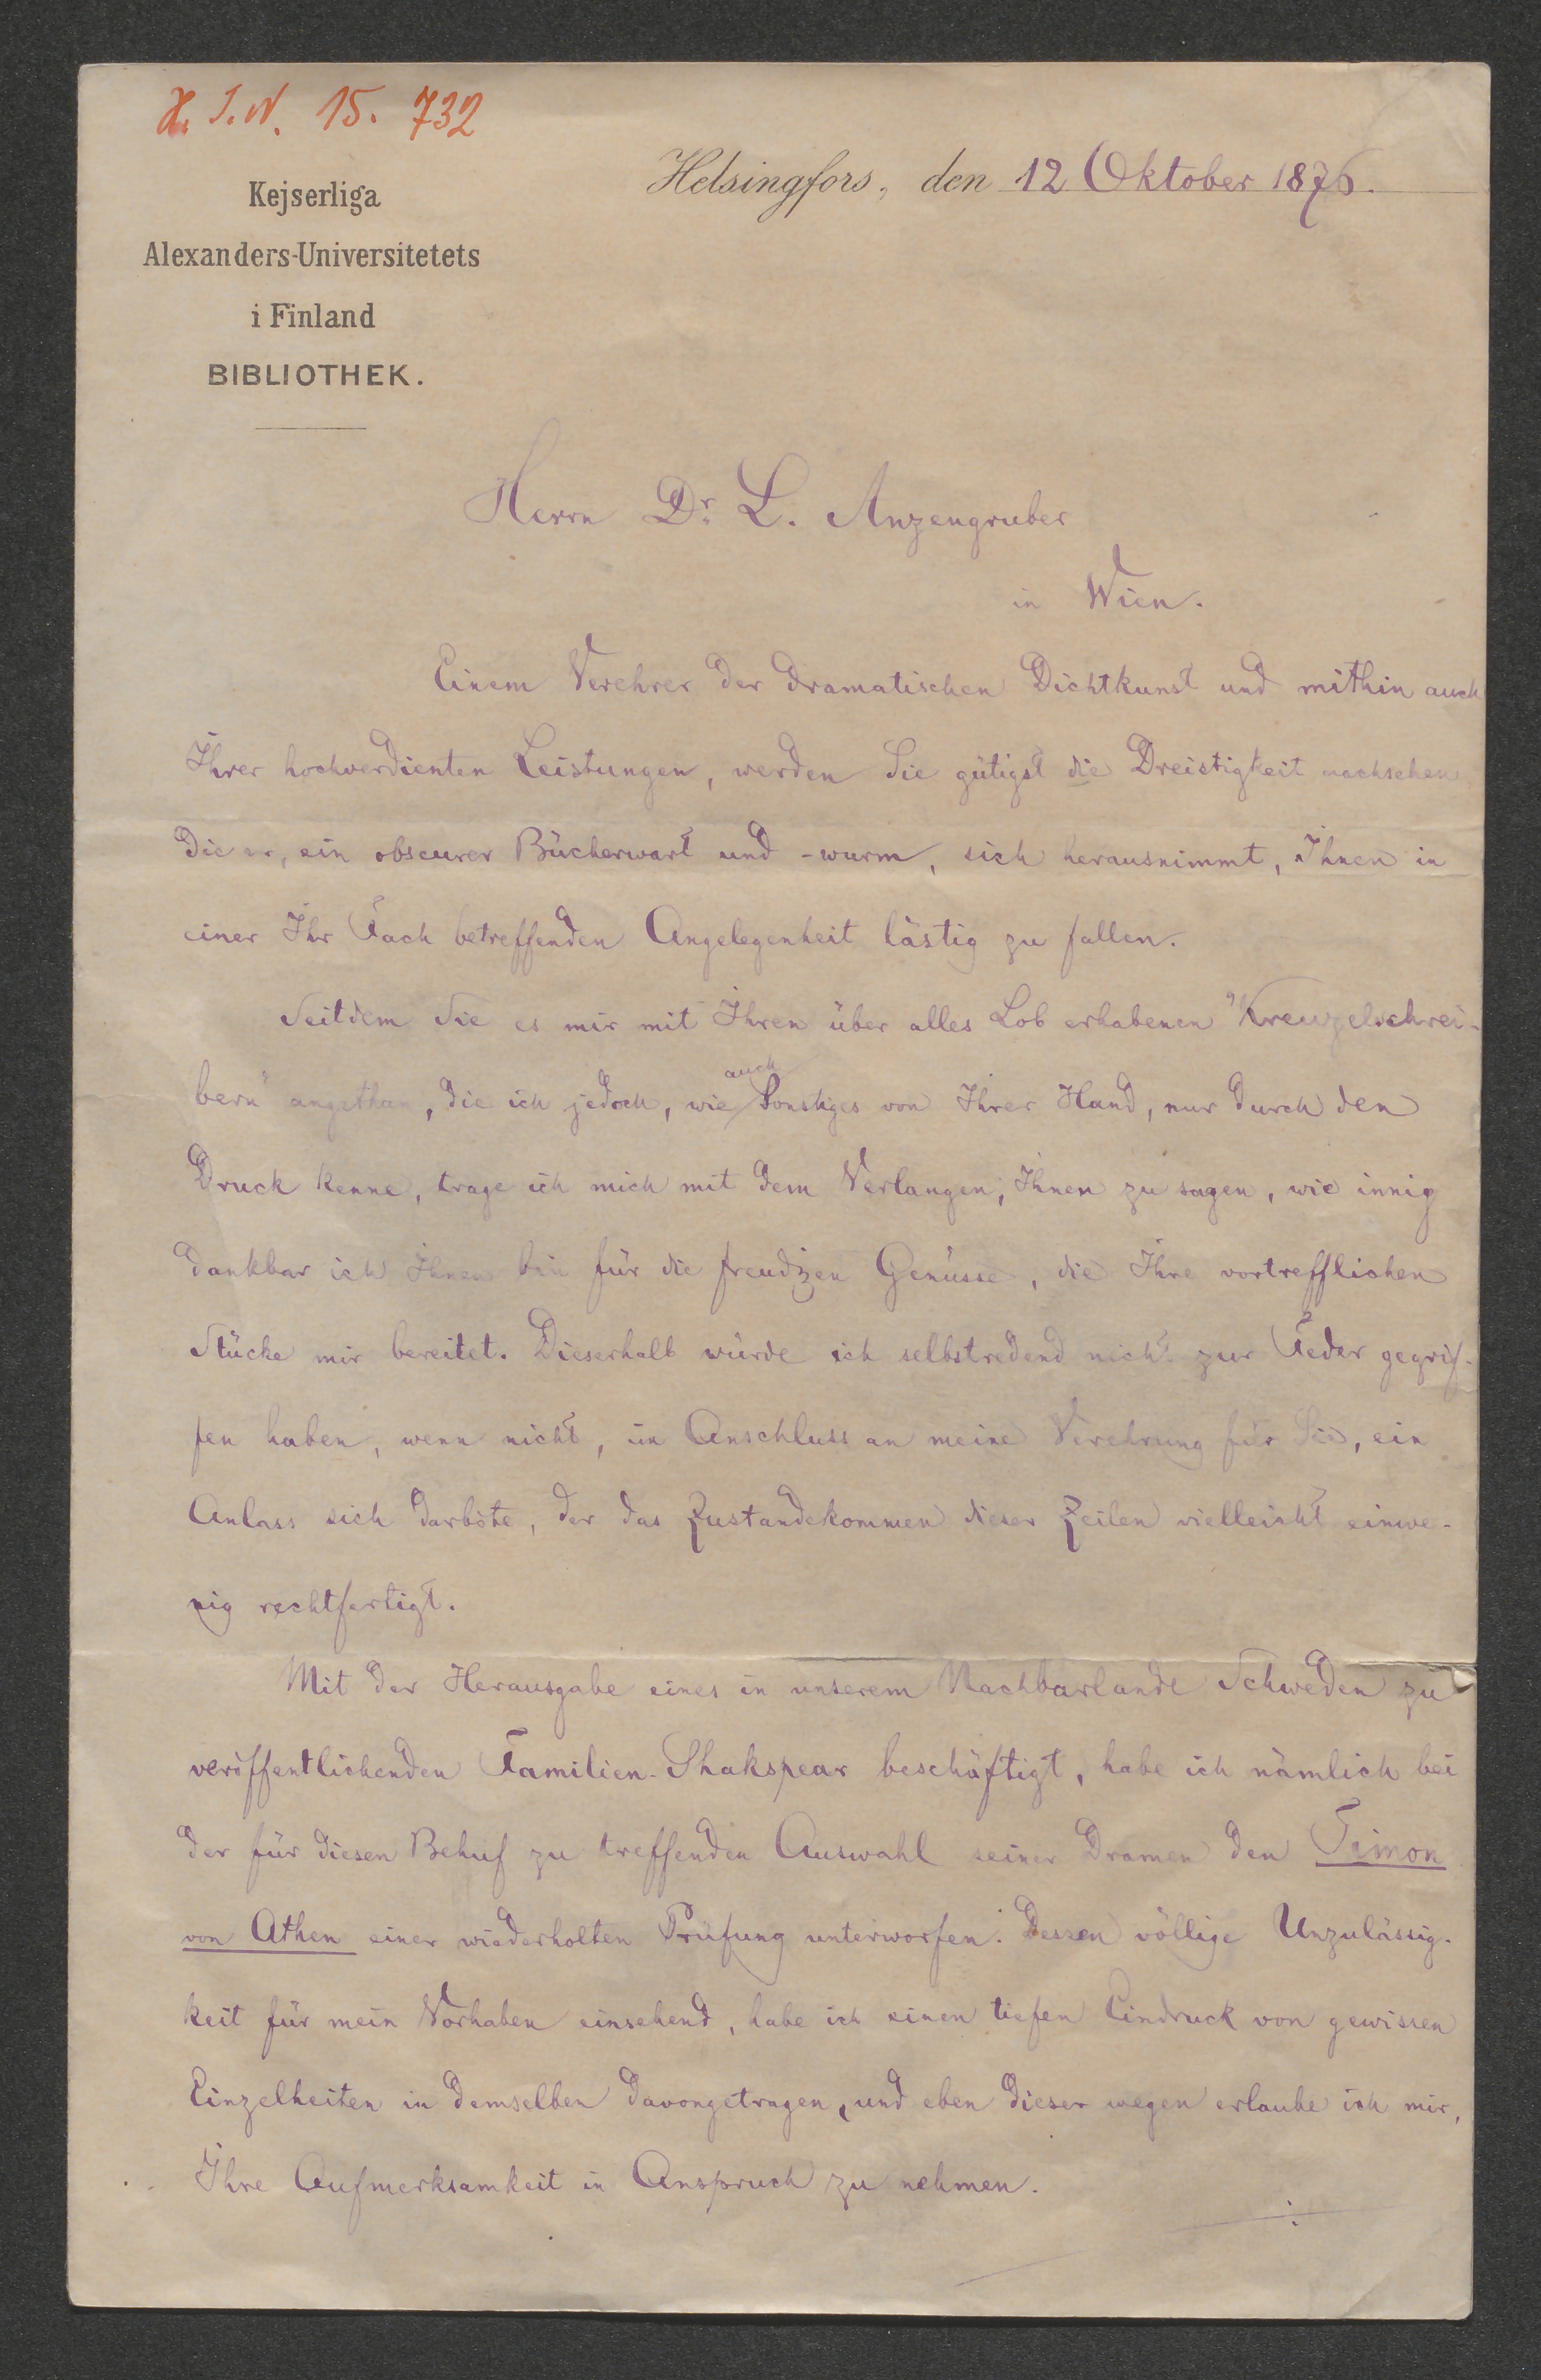 H. I. N. 15. 732
Kejserliga
Alexanders-Universitetets
i Finland
BIBLIOTHEK.
Helsingfors, den 12 Oktober 1876.
Herrn Dr. L. Anzengruber
in Wien.
Einem Verehrer der dramatischen Dichtkunst und mithin auch
Ihrer hochverdienten Leistungen, werden Sie gütigst die Dreistigkeit nachsehen
die er, ein obscurer Bücherwart und -wurm, sich herausnimmt, Ihnen in
einer Ihr Fach betreffenden Angelegenheit lästig zu fallen.
Seitdem Sie es mir mit Ihren über alles Lob erhabenen "Kreuzelschrei-
bern" angethan, die ich jedoch, wie auch Sonstiges von Ihrer Hand, nur durch den
Druck kenne, trage ich mich mit dem Verlangen, Ihnen zu sagen, wie innig
dankbar ich Ihnen bin für die freudigen Genüsse, die Ihre vortrefflichen
Stücke mir bereitet. Dieserhalb würde ich selbstredend nicht zur Feder gegrif-
fen haben, wenn nicht, im Anschluss an meine Verehrung für Sie, ein
Anlass sich darböte, der das Zustandekommen dieser Zeilen vielleicht einwe-
nig rechtfertigt.
Mit der Herausgabe eines in unserem Nachbarlande Schweden zu
veröffentlichenden Familien-Shakspear beschäftigt, habe ich nämlich bei
der für diesen Behuf zu treffenden Auswahl seiner Dramen den Timon
von Athen einer wiederholten Prüfung unterworfen. Dessen völlige Unzulässig-
keit für mein Vorhaben einsehend, habe ich einen tiefen Eindruck von gewissen
Einzelheiten in demselben davongetragen, und eben dieser wegen erlaube ich mir,
Ihre Aufmerksamkeit in Anspruch zu nehmen.